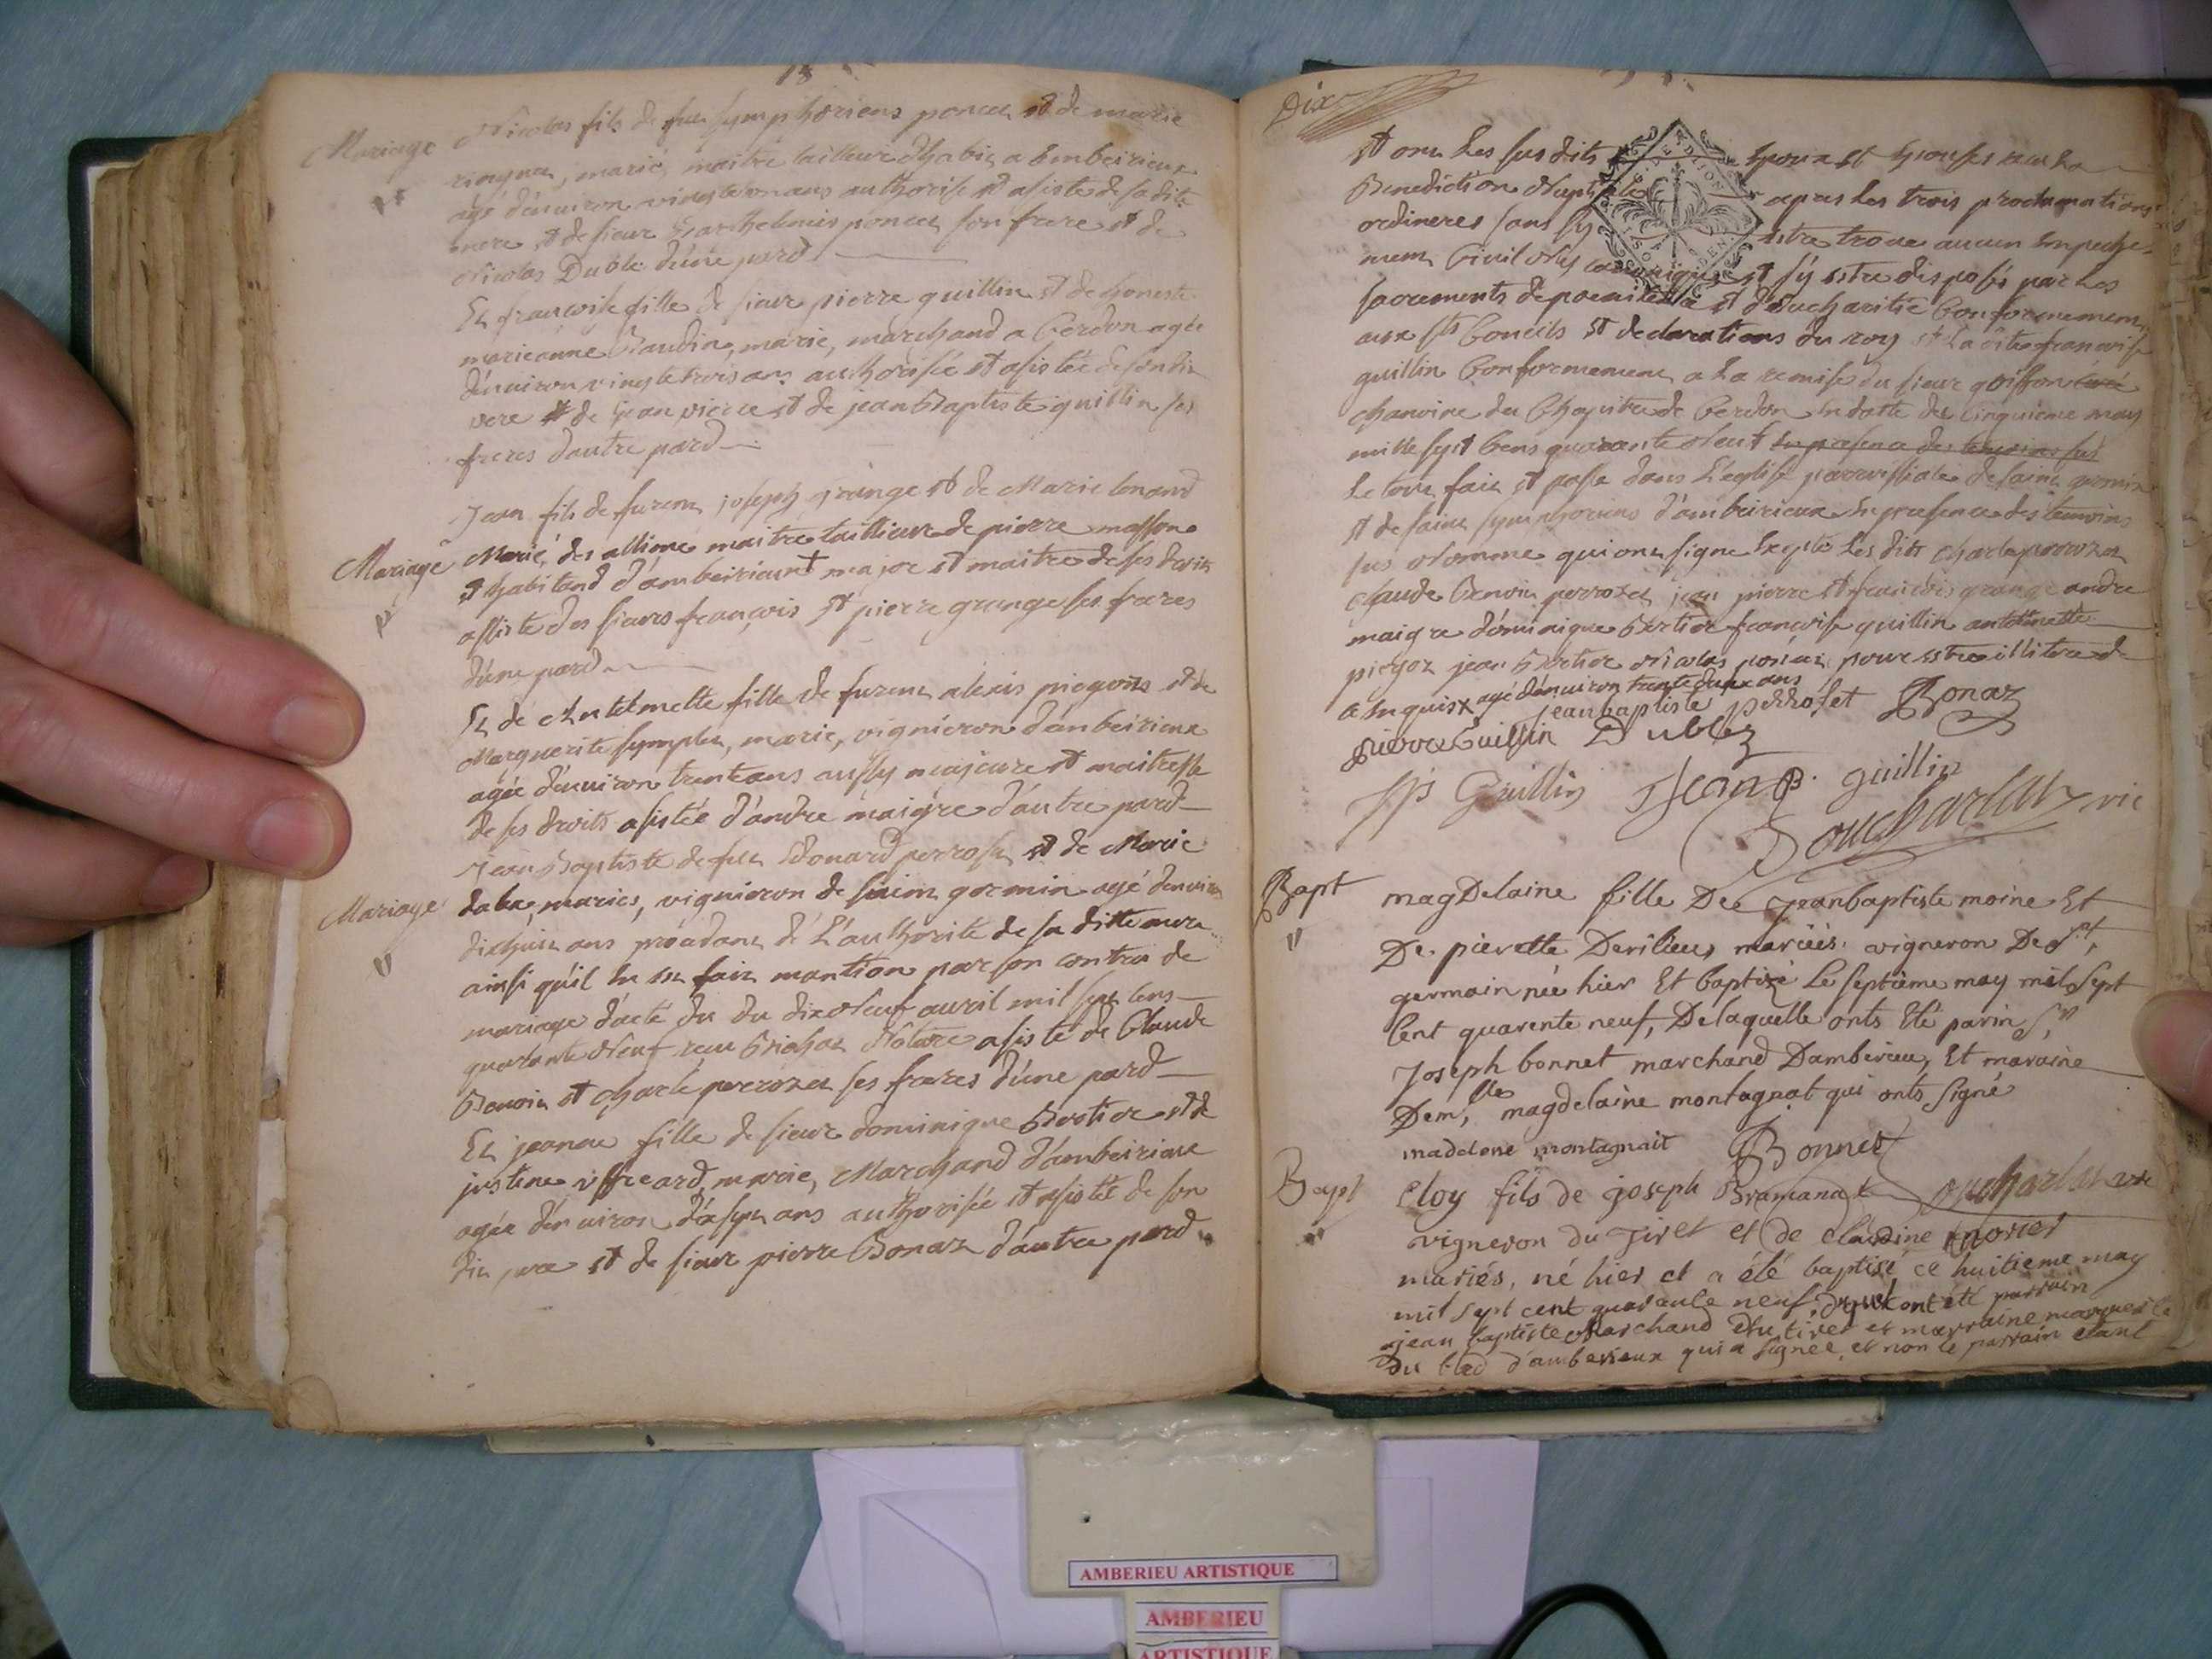 18
Mariage
Nicolas fils de feu symphoriens poncet et de marie
marié, maitre tailleur dhabis a Embeirieux
agé d'enuiron vingt ans authorise et asiste de sa dite
mere et de sieur Barthelemis poncet son frere et de
Nicolas Duble d'une pard
Et francoise fille de sieur pierre guillin et de honeste
marieanne Baudin, marie, marchand a Cerdon agée
d'enuiron vingt trois ans authorisée et asistée de son dit
pere et de jean pierre et de jean Baptiste guillin ses
freres d'autre pard
Mariage
Jean fils de furent joseph grange et de Marie
Marié, des allime maitre taillieur de pierre masson
et habitand d'ambeirieux major et maitre de ses droits
assiste des sieurs francois et pierre grange ses freres
d'une pard
Et de Antelmette fille de furent alexis piegois et de
Marguerite symples, marie, vignieron d'ambeirieux
agée d'enuiron trente ans aussy majeure et maitresse
de ses droits asistée d'andre maigre d'autre pard
Mariage
Jean Baptiste de feu Edouard perroset et de Marie
maries, vignieron de saint germin agé d'enuiron
dixhuit ans procedant de l'authorité de sa ditte mere
ainsi qu'il en est fait mantion par son contrat de
mariage d'acté du du dix Neuf auril mil sept cens
quarante Neuf recu Brichat Notere asiste de Claude
Benoit et charle perrozet ses freres d'une pard
Et jeanne fille de sieur dominique Bertier et de
justine marie, Marchand d'ambeirieux
agée d'enuiron ans authorisée et asistée de son
dit pere et de sieur pierre Bonaz d'autre pard
Dix
et ont les susdits Epoux et Epouses recu la
Benediction Nuptiale apres les trois proclamations
ordineres sans sy estre troue aucun Empeche-
ment Civil Ny canonique et s'y estre disposés par les
sacrements de poenitence et d'Eucharitie Conformement
aux sts Concils et declarations du roy et la dite francoise
guillin Conformement a la remise du sieur goiffon curé
chanoine du Chapitre de Cerdon En datte du Cinquieme may
mille sept Cens quarante Neuf En presence des temoins sus
Le tout fait et passe dans L'eglise parroissiale de saint germin
et de saint symphoriens d'ambeirieux En presence des temoins
sus Nomme qui ont signe Excepte les dits charle perrozet
claude Benoit perrozet jean pierre et francois grange andre
maigre dominique Bertier francoise guillin antelmette
piegoz jean Bertier Nicolas poncet, pour estre illitere d
a Enquis x agé d'enuiron trente deux ans
jeanbaptiste perroset Bonaz
pierre Guillin Dublez
Guillin Jean B. guillin
Boucharlat vic
Bapt
magDelaine fille De Jeanbaptiste moine Et
De pierette Derilieux mariés vigneron De st,
germain née hier Et baptizé Le septième may mil sept
Cent quarente neuf, De laquelle onts Eté parin Sr
Joseph bonnet marchand Dambérieu, Et maraine
Demlle, magdelaine montagnat qui onts signé
madelene montagnait Bonnet
Boucharlat vic
Bapt
Eloy fils de joseph Bramanat
vigneron du Tiret et de claudine
mariés, né hier et a été baptisé ce huitieme may
mil sept cent quarante neuf, duquel ont été parrain
jean baptiste Marchand du tiret et marraine marguerite
du bled d'amberieux qui a signée, et non le parrain étant
AMBERIEU ARTISTIQUE
AMBERIEU
ARTISTIQUE